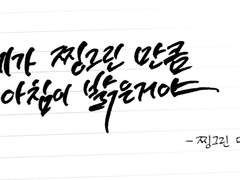 찡그린 만큼
아침이 밝은거야
- 찡그린